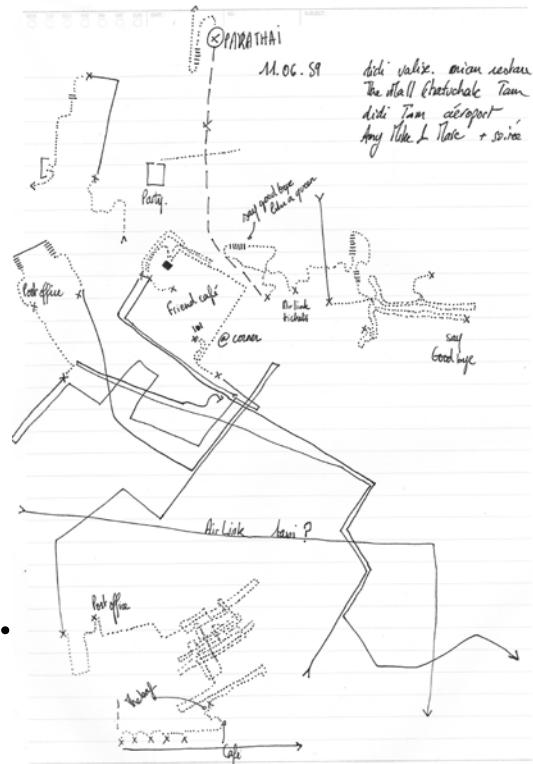 PARATHAI
11.06.59
didi valise.
The Mall Chatuchak Tam
didi Tam aéroport
Amy Mike & Marc + soirée
Party.
say good bye
like a queen
Post office
Friend café
@ corner
Air link
tickets
say
Good bye
Air Link
Post office
Café